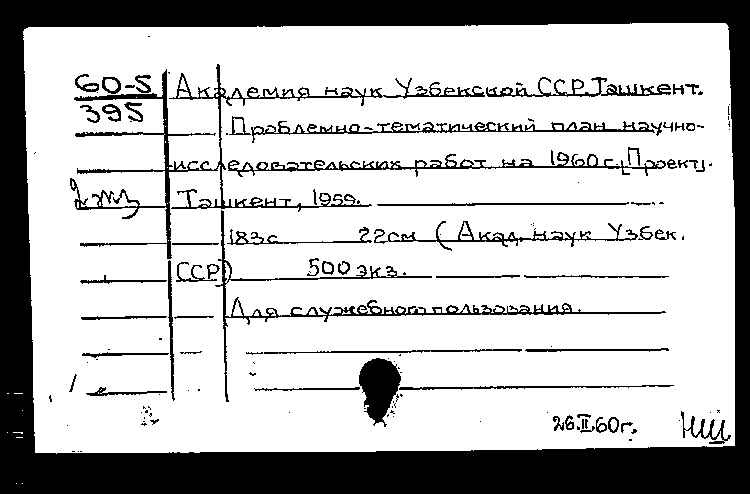 60-5 Академия наук Узбекской ССР. Ташкент.
395
Проблемно-тематический план научно-
исследовательских работ на 1960 г. [Проект].
2 экз Ташкент, 1959.
183 с. 22 см (Акад. наук Узбек.
ССР) 500 экз.
Для служебного пользования.
26.II.60г.